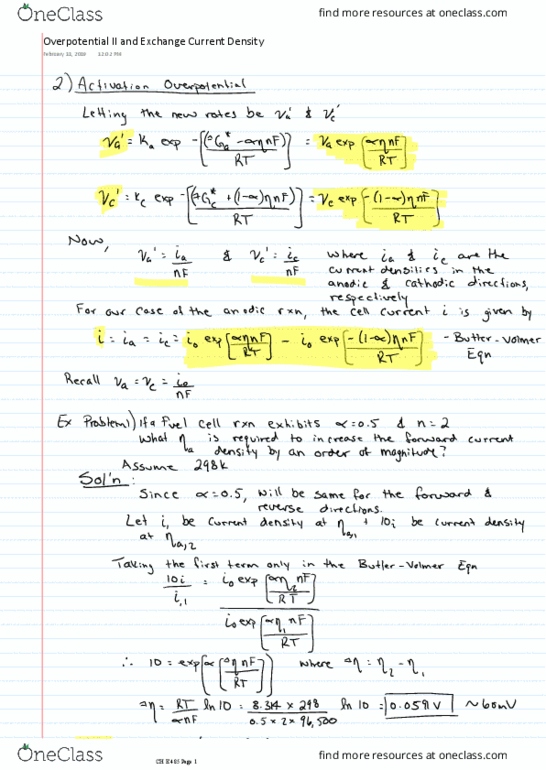 OneClass
find more resources at oneclass.com
Overpotential II and Exchange Current Density
February 12, 2019 12:02 PM
2) Activation Overpotential
Letting the new rates be Va' & Vc'
Va' = Ka exp -[(ᐩGa* - αηnF)/RT] = Va exp [αηnF/RT]
Vc' = Kc exp -[(ᐩGc* + (1-α)ηnF)/RT] = Vc exp [-(1-α)ηnF/RT]
Now,
Va' = ia/nF & Vc' = ic/nF where ia & ic are the
current densities in the
anodic & cathodic directions,
respectively
For our case of the anodic rxn, the cell current i is given by
i = ia - ic = io exp [αηnF/RT] - io exp [-(1-α)ηnF/RT] - Butler-Volmer
Eqn
Recall Va = Vc = io/nF
Ex Problem 1) If a fuel cell rxn exhibits α=0.5 & n=2
What ηa is required to increase the forward current
density by an order of magnitude?
Assume 298k
Sol'n:
Since α=0.5, will be same for the forward &
reverse directions.
Let i, be current density at ηa,1 + 10i be current density
at ηa,2
Taking the first term only in the Butler-Volmer Eqn
10i/i,1 = io exp [αη2nF/RT] / io exp [αη1nF/RT]
∴ 10 = exp [α(ᐞηnF/RT)] where ᐞη = η2 - η1
ᐞη = RT/αnF ln 10 = 8.314 x 298/0.5 x 2 x 96,500 ln 10 = 0.059 V ~60mV
OneClass
find more resources at oneclass.com